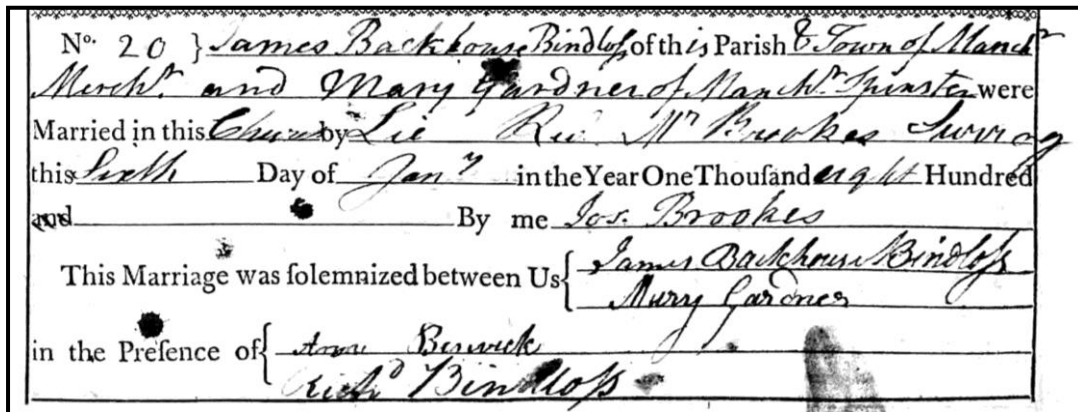 No. 20 } James Backhouse Bindloſs of this Parish & Town of Manchr
Mercht. and Mary Gardner of Manchr. Spinster were
Married in this Church by Lic Rev. Mr Brookes Surrog
this Sixth Day of Jany in the Year One Thouſand eight Hundred
and By me Jos. Brookes
This Marriage was ſolemnized between Us { James Backhouse Bindloſs
Mary Gardner
in the Preſence of { Anne Beswick
Richd Bindloſs